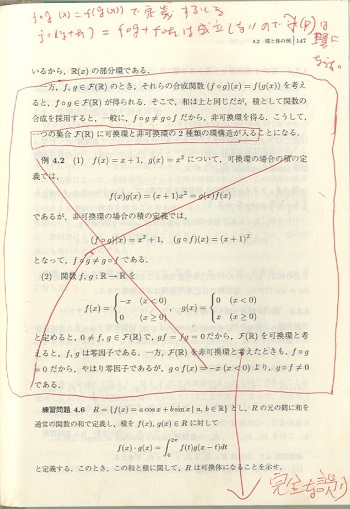 f∘g (x) = f(g(x)) で定義すると
f∘(g+h) = f∘g + f∘h は成立しないので F(R)は
環に
ならない
4.2 環と体の例 147
いるから，ℝ(x) の部分環である．
一方，f, g ∈ F(ℝ) のとき，それらの合成関数 (f∘g)(x) = f(g(x)) を考え
ると，f∘g ∈ F(ℝ) が得られる．そこで，和は上と同じだが，積として関数の
合成を採用すると，一般に，f∘g ≠ g∘f だから，非可換環を得る．こうして，
一つの集合 F(ℝ) に可換環と非可換環の 2 種類の環構造が入ることになる．
例 4.2 (1) f(x) = x + 1, g(x) = x² について，可換環の場合の積の定
義では，
f(x)g(x) = (x + 1)x² = g(x)f(x)
であるが，非可換環の場合の積の定義では，
(f∘g)(x) = x² + 1, (g∘f)(x) = (x + 1)²
となって，f∘g ≠ g∘f である．
(2) 関数 f, g : ℝ → ℝ を
f(x) = { −x (x < 0) 0 (x ≥ 0) , g(x) = { 0 (x < 0) x (x ≥ 0)
と定めると，0 ≠ f, g ∈ F(ℝ) で，gf = fg = 0 だから，F(ℝ) を可換環と考
えると，f, g は零因子である．一方，F(ℝ) を非可換環と考えたときも，f∘g
= 0 だから，やはり零因子であるが，g∘f(x) = −x (x < 0) より，g∘f ≠ 0
である．
練習問題 4.6 R = {f(x) = a cos x + b sin x | a, b ∈ ℝ} とし，R の元の間に和を
通常の関数の和で定義し，積を f(x), g(x) ∈ R に対して
f(x) · g(x) = ∫₀^{2π} f(t)g(x − t)dt
と定義する．このとき，この和と積に関して，R は可換体になることを示せ．
完全な誤り